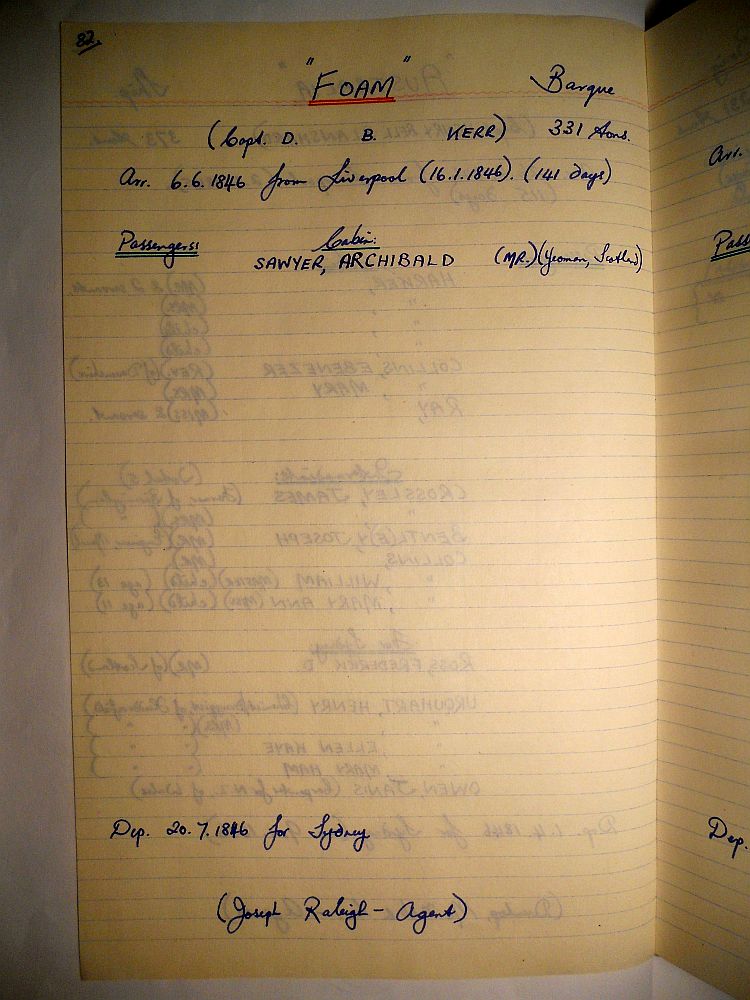 82.
"FOAM" Barque
(Capt. D. B. KERR) 331 tons.
Arr. 6.6.1846 from Liverpool (16.1.1846). (141 days)
Passengers: Cabin:
SAWYER, ARCHIBALD (MR.) (Yeoman, Scotland)
Dep. 20.7.1846 for Sydney
(Joseph Raleigh - Agent)
Arr.
Pass
Dep.